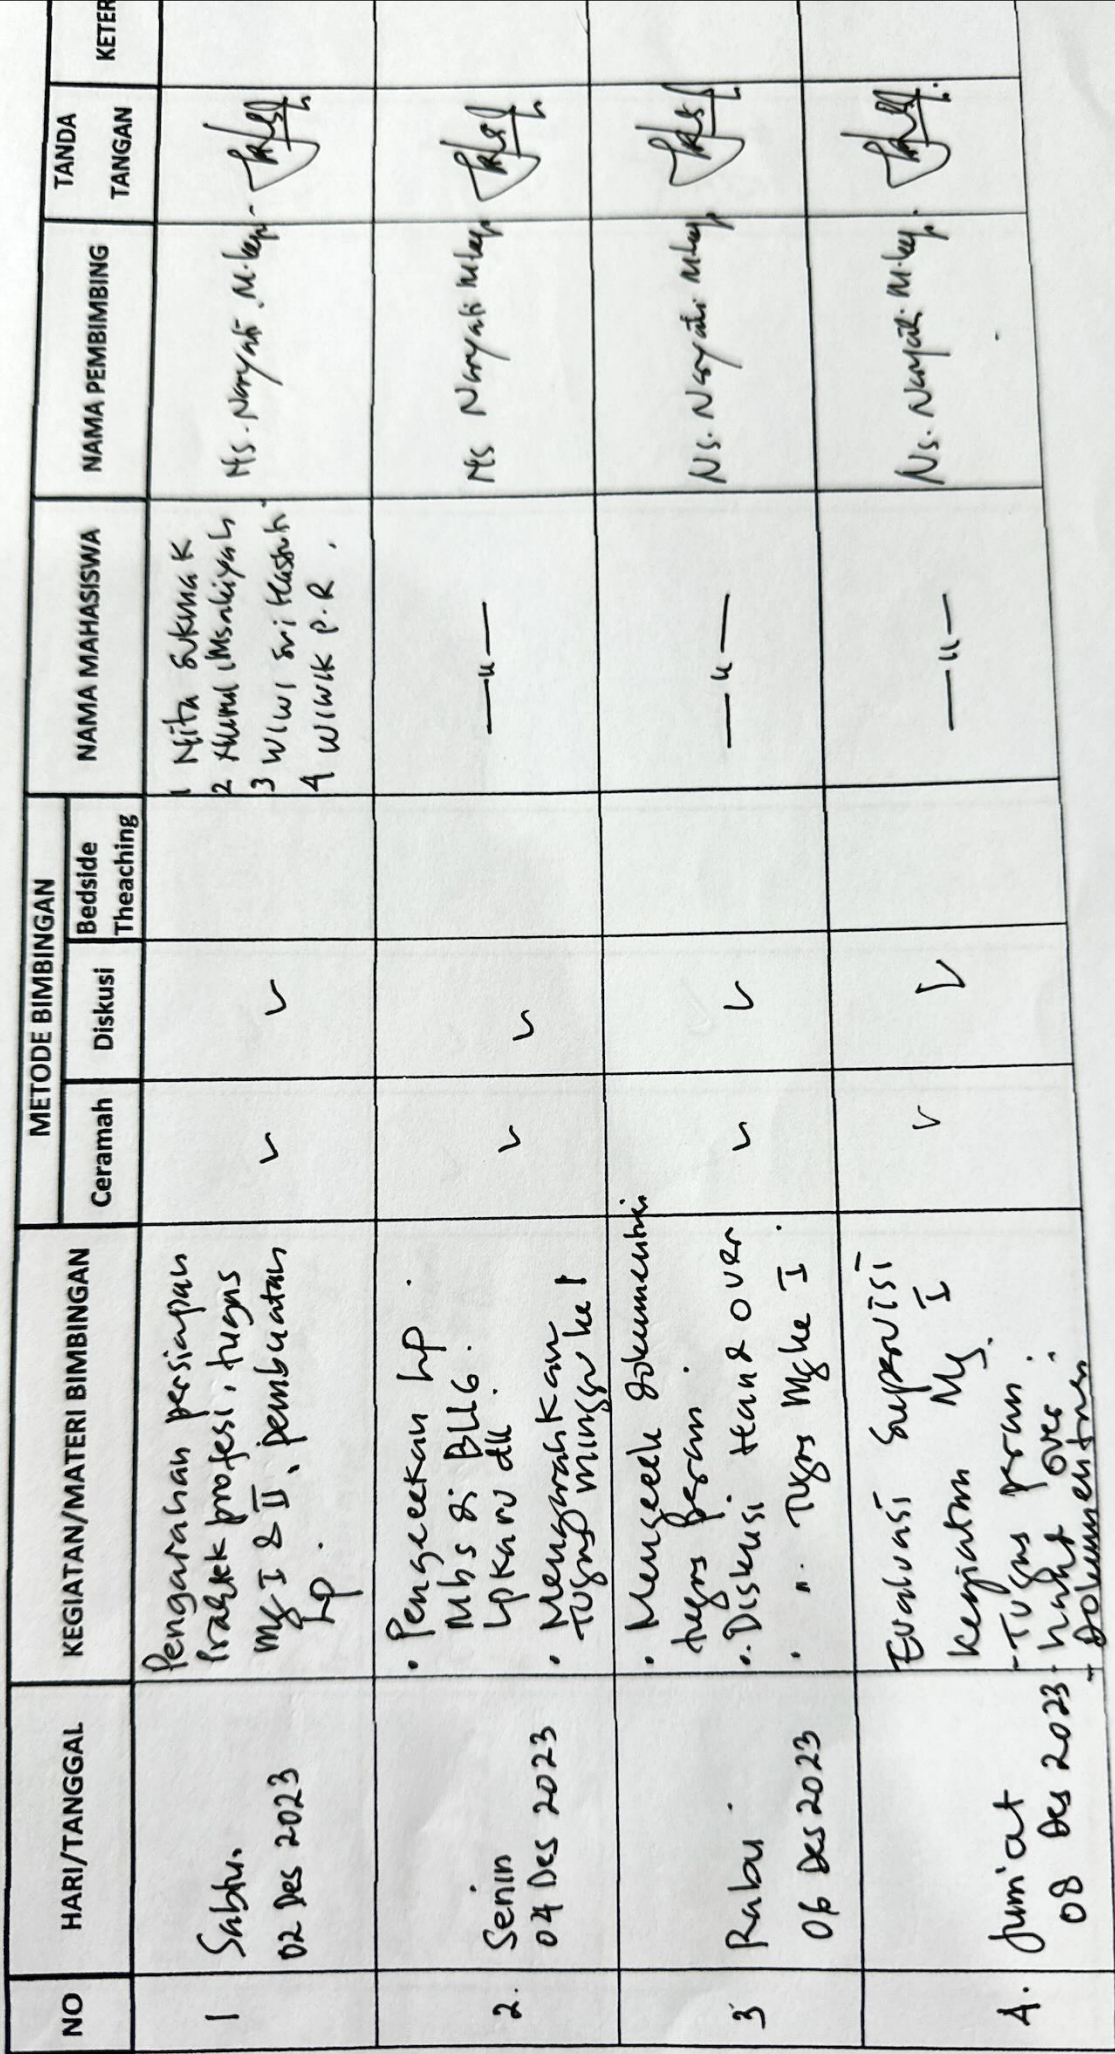 NO
HARI/TANGGAL
KEGIATAN/MATERI BIMBINGAN
METODE BIMBINGAN
Ceramah
Diskusi
Bedside
Theaching
NAMA MAHASISWA
NAMA PEMBIMBING
TANDA
TANGAN
KETER
1
Sabtu.
02 Des 2023
Pengarahan persiapan
Praktek profesi, tugas
Mg I & II, pembuatan
LP.
v
v
1 Nita Sukma K
2 Nurul Imsakiyah
3 WIWI Sri Hastuti
4 WIWIK P.R.
Ns. Naryati. M.kep
2.
Senin
04 Des 2023
• Pengecekan LP.
Mhs di BLLG.
LpKaru dll
• Mengarahkan
Tugas minggu ke 1
v
v
—"—
Ns Naryati M.kep
3
Rabu.
06 Des 2023
• Mengecek dokumentasi
tugas peran.
• Diskusi Hand over
• ". Tugas Mg ke I.
v
v
—"—
Ns. Naryati M.kep
4.
Jum'at
08 Des 2023
Evaluasi Supervisi
Kegiatan Mg. I
- Tugas peran.
- Hand over.
- Dokumentasi
v
v
—"—
Ns. Naryati M.kep.